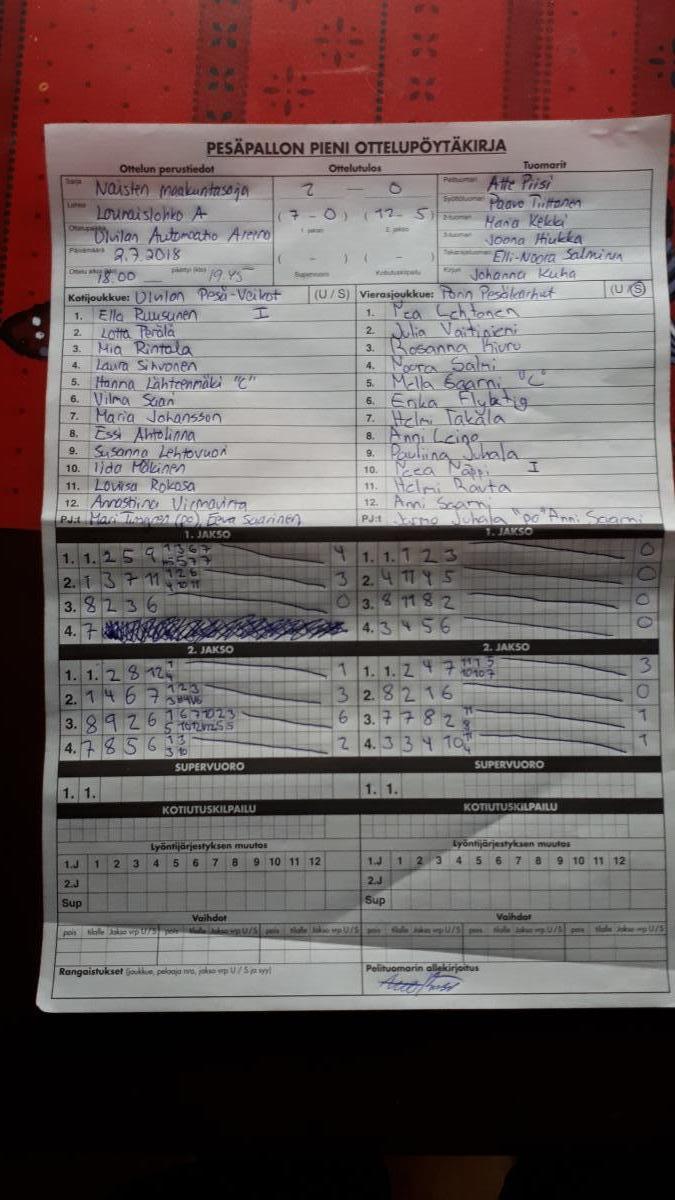 PESÄPALLON PIENI OTTELUPÖYTÄKIRJA
Ottelun perustiedot Ottelutulos Tuomarit
Sarja Naisten maakuntasarja 2 — 0 Pelituomari Atte Piisi
Lohko Lounaislohko A (7-0) (12-5) Syöttötuomari Paavo Tiittanen
1. jakso 2. jakso 2-tuomari Maria Kekki
Ottelupaikka Ulvilan Automaatio Areena 3-tuomari Joona Hiukka
Päivämäärä 2.7.2018 ( - ) ( - ) Takarajatuomari Elli-Noora Salminen
Ottelu alkoi (klo) 18.00 päättyi (klo) 19.45 Supervuoro Kotiutuskilpailu Kirjuri Johanna Kuha
Kotijoukkue: Ulvilan Pesä-Veikot (U / S) Vierasjoukkue: Porin Pesäkarhut (U / S)
1. Ella Ruusunen I 1. Pea Lehtonen
2. Lotta Perälä 2. Julia Vaitinieni
3. Mia Rintala 3. Rosanna Kiuru
4. Laura Sihvonen 4. Noora Salmi
5. Hanna Lähteenmäki "C" 5. Mella Saarni "C"
6. Vilma Saari 6. Erika Flyktig
7. Maria Johansson 7. Helmi Takala
8. Essi Ahtolinna 8. Anni Leino
9. Susanna Lehtovuori 9. Pauliina Juhala
10. Iida Mäkinen 10. Neea Näppi I
11. Loviisa Rokosa 11. Helmi Rauta
12. Annastiina Virmavirta 12. Anni Saarni
PJ:t Mari (po), Eeva Saarinen PJ:t Jarmo Juhala "po" Anni Saarni
1. JAKSO 1. JAKSO
1. 1. 2 5 9 4 1. 1. 1 2 3 0
2. 1 3 7 11 3 2. 4 11 4 5 0
3. 8 2 3 6 0 3. 8 11 8 2 0
4. 7 4. 3 4 5 6 0
2. JAKSO 2. JAKSO
1. 1. 2 8 12 1 1. 1. 2 4 7 3
2. 1 4 6 7 3 2. 8 2 1 6 0
3. 8 9 2 6 6 3. 7 7 8 2 1
4. 7 8 5 6 2 4. 3 3 4 10 1
SUPERVUORO SUPERVUORO
1. 1. 1. 1.
KOTIUTUSKILPAILU KOTIUTUSKILPAILU
Lyöntijärjestyksen muutos Lyöntijärjestyksen muutos
1.J 1 2 3 4 5 6 7 8 9 10 11 12 1.J 1 2 3 4 5 6 7 8 9 10 11 12
2.J 2.J
Sup Sup
Vaihdot Vaihdot
pois tilalle Jakso vrp U / S pois tilalle Jakso vrp U / S pois tilalle Jakso vrp U / S pois tilalle Jakso vrp U / S pois tilalle Jakso vrp U / S pois tilalle Jakso vrp U / S
Rangaistukset (joukkue, pelaaja nro, jakso vrp U / S ja syy) Pelituomarin allekirjoitus